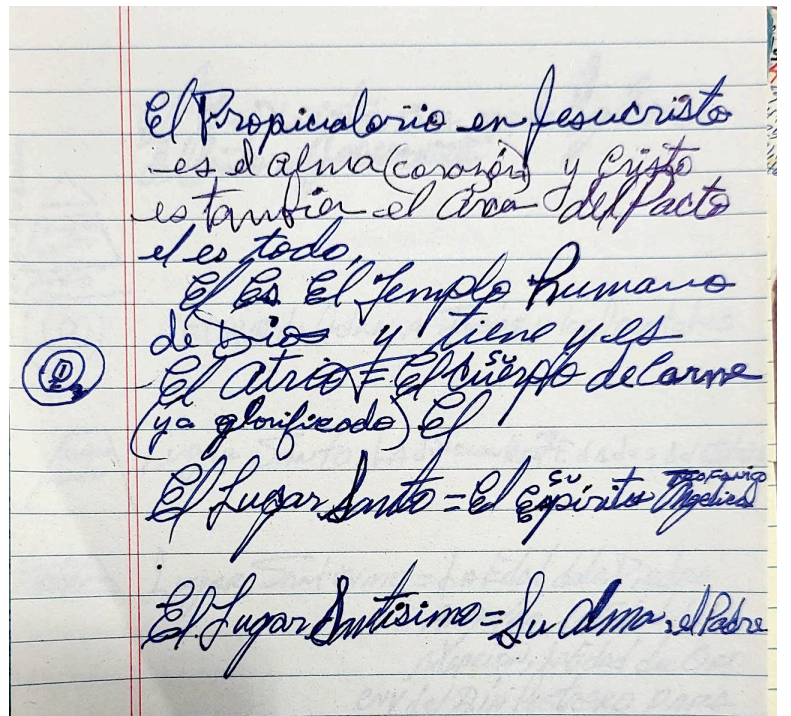 El Propiciatorio en Jesucristo
es el alma (corazón) y Cristo
es tambien el Arca del Pacto
el es todo,
El Es El Templo humano
de Dios y tiene y es
El Atrio = El su cuerpo de Carne
(ya glorificado) El
El Lugar Santo = El su Espíritu Teofanico Angelica
El Lugar Santisimo = Su Alma, el Padre